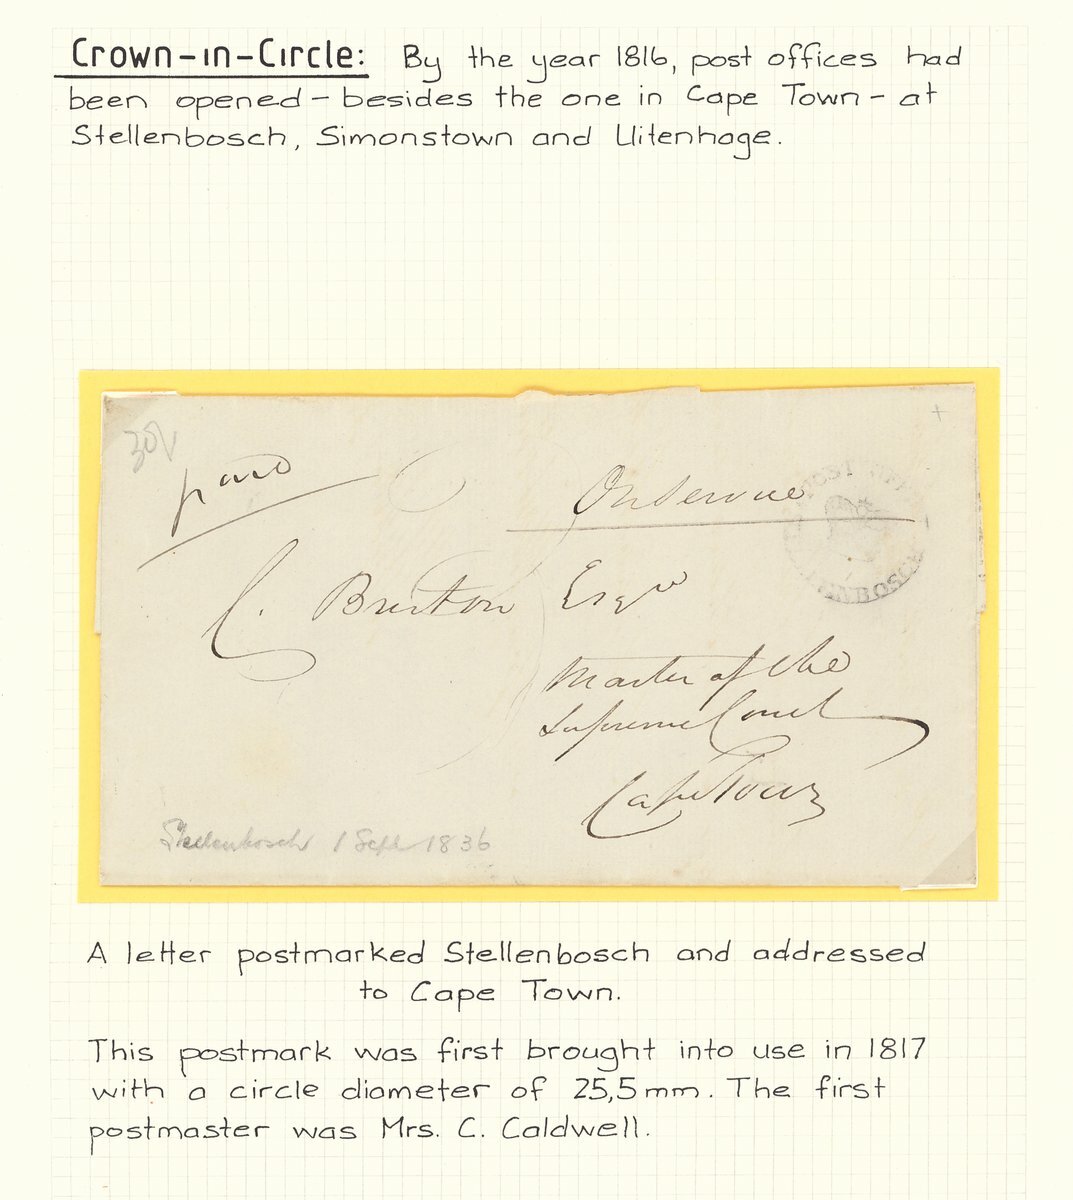 Crown-in-Circle: By the year 1816, post offices had
been opened - besides the one in Cape Town - at
Stellenbosch, Simonstown and Uitenhage.
paid
On Service
POST OFFI
BOSCH
C. Brixton Esqr
Master of the
Supreme Court
Cape Town
Stellenbosch 1 Sept 1836
A letter postmarked Stellenbosch and addressed
to Cape Town.
This postmark was first brought into use in 1817
with a circle diameter of 25,5mm. The first
postmaster was Mrs. C. Caldwell.